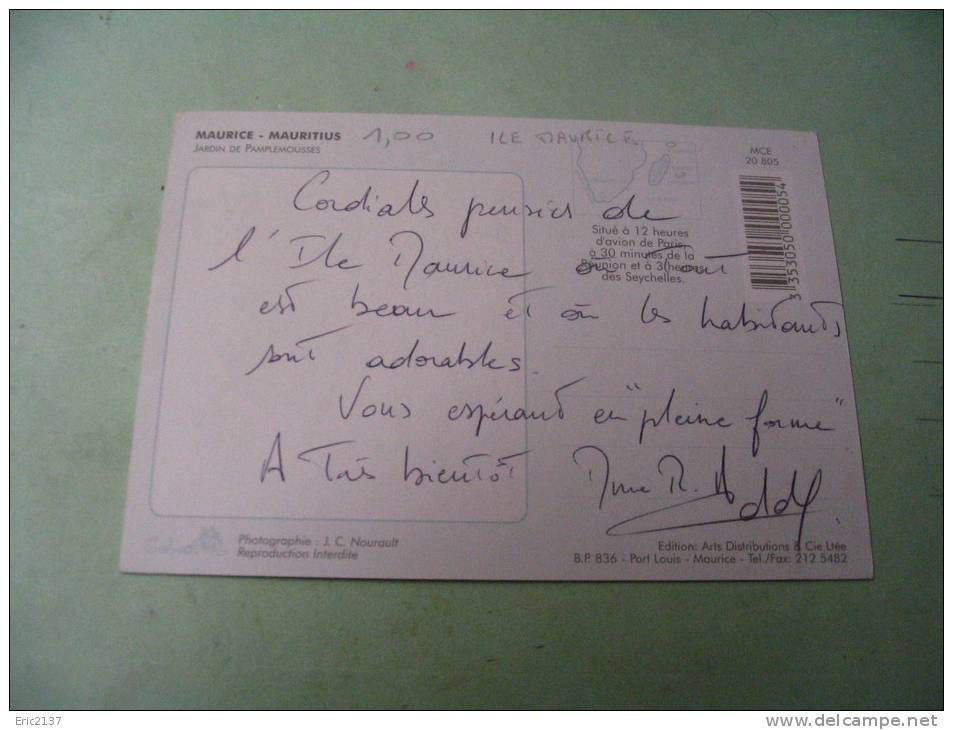 MAURICE - MAURITIUS 1,00 ILE MAURICE
JARDIN DE PAMPLEMOUSSES
MCE
20 805
Situé à 12 heures
d'avion de Paris,
à 30 minutes de la
Réunion et à 3 heures
des Seychelles.
3 353050 000054
Cordiales pensées de
l'Ile Maurice où Tout
est beau et où les habitants
sont adorables.
Vous espérant en "pleine forme"
A Très bientôt Mme R.
Photographie : J. C. Nourault
Reproduction Interdite
Edition: Arts Distributions & Cie Ltée
B.P. 836 - Port Louis - Maurice - Tel./Fax: 212 5482
Eric2137
www.delcampe.net